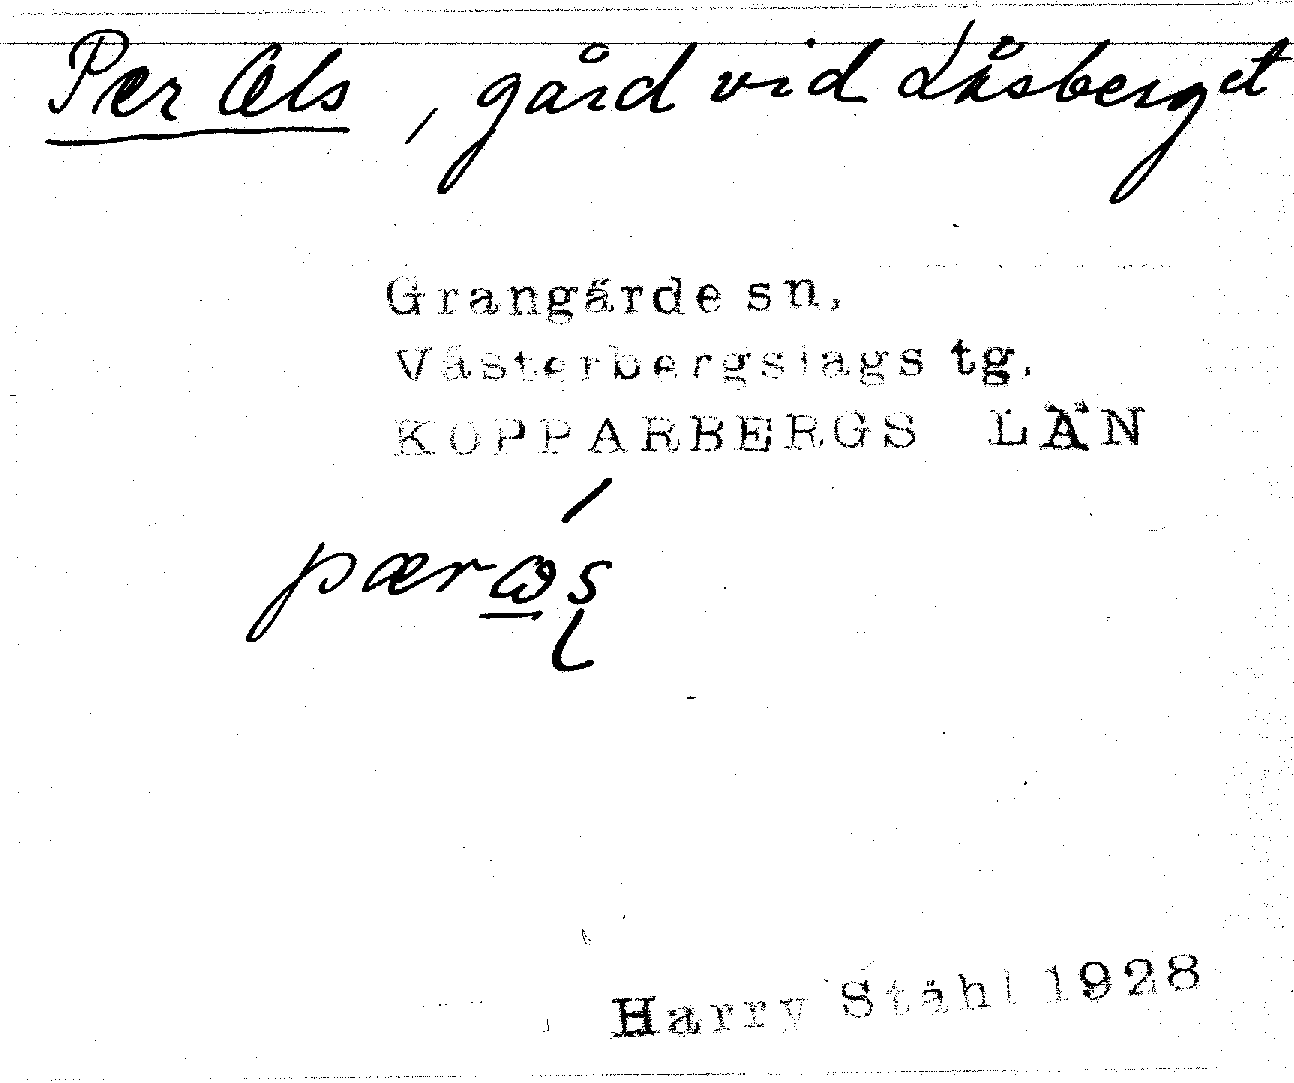 Per Ols, gård vid Låsberget
Grangärde sn,
Västerbergslags tg.
KOPPARBERGS LÄN
Harry Ståhl 1928